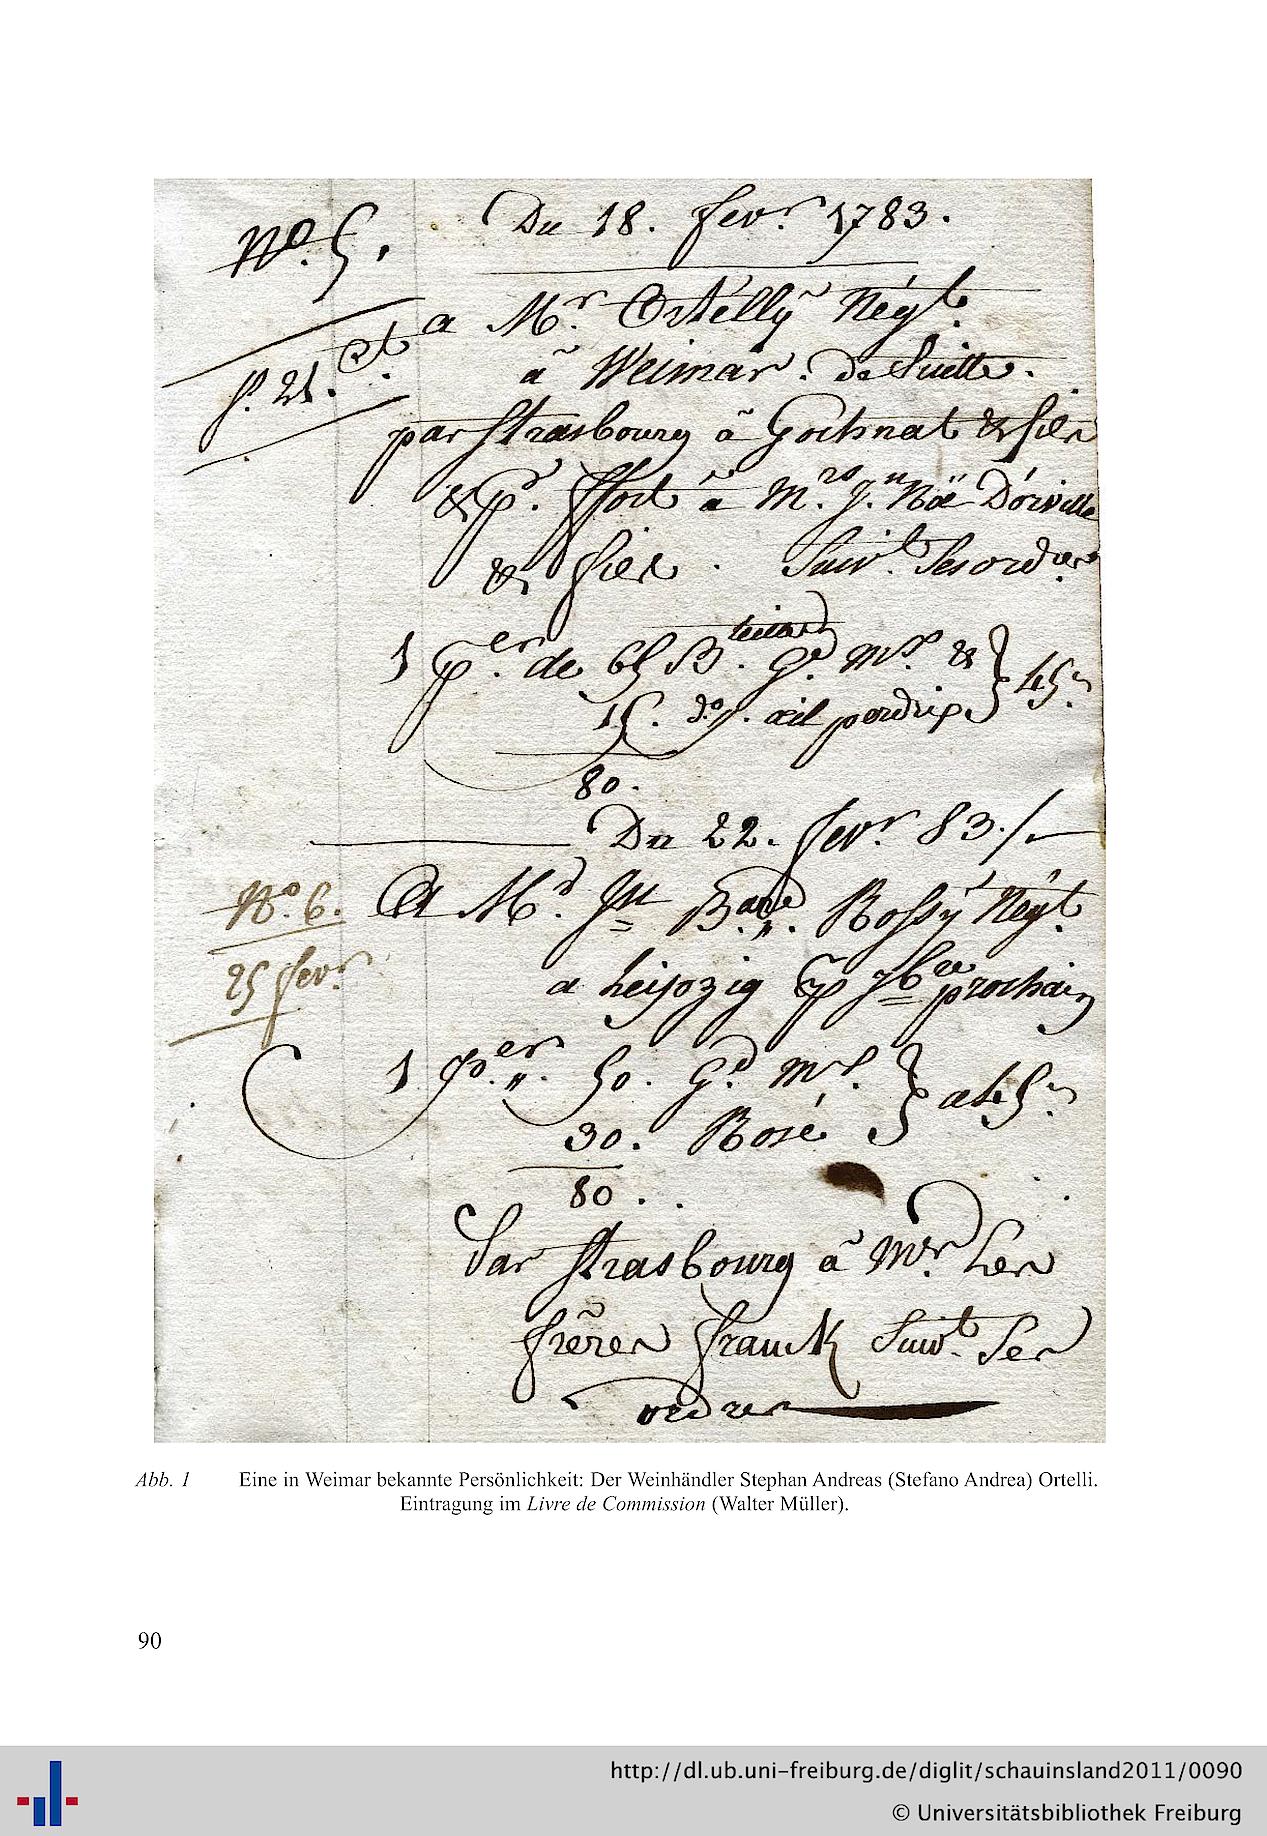 No. 5.
Du 18. fevr. 1783.
a Mr. Ortelly Négt.
p. 21. ct.
à Weimar. de Suitte.
par Strasbourg à Gochnat & fils
& pr. ffort à Mrs. Jn. Noë D'orville
& fils. Suivt. Ses ordres
1 per. de 65 Bteilles Gd. Ms. &
15. do. œil perdrix } 45
80.
Du 22. fevr. 83.
No. 6.
A Mr. Jn Bapd. Rossy Négt.
25 fevr.
a Leipzig p 7bre prochain
1. per. 50. Gd. Ms.
30. Rosé } a 45
80.
Par Strasbourg à Mrs. Les
frères franck Suivt. Ses
ordres
Abb. 1 Eine in Weimar bekannte Persönlichkeit: Der Weinhändler Stephan Andreas (Stefano Andrea) Ortelli.
Eintragung im Livre de Commission (Walter Müller).
90
http://dl.ub.uni-freiburg.de/diglit/schauinsland2011/0090
© Universitätsbibliothek Freiburg